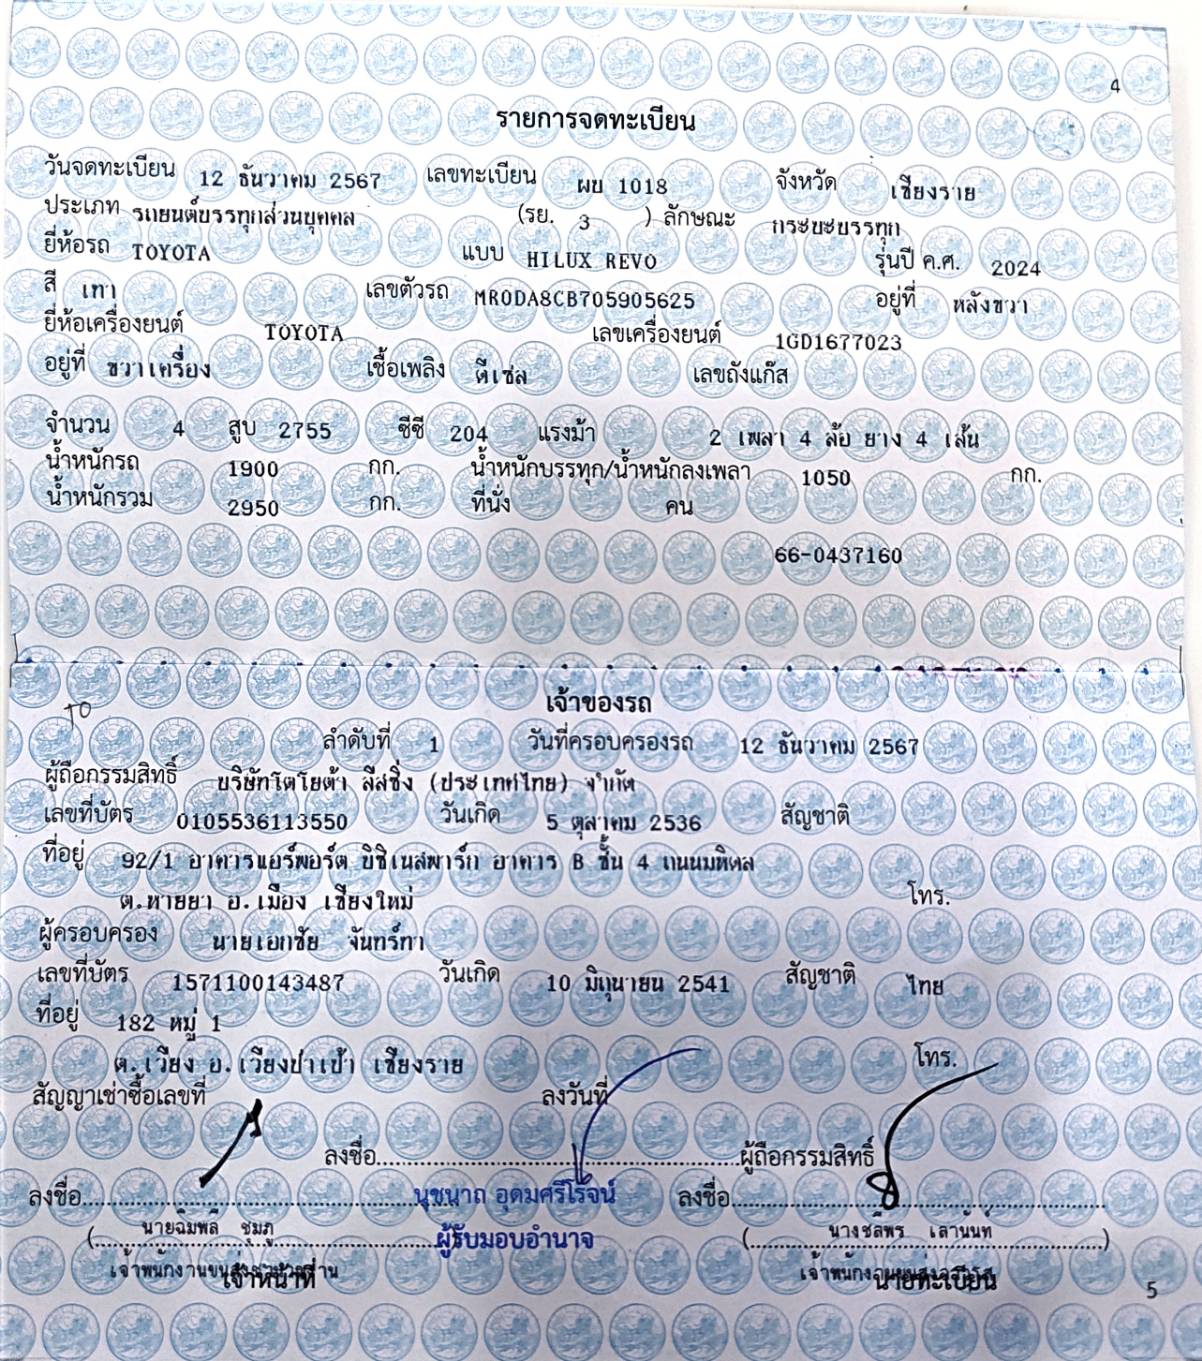 4
รายการจดทะเบียน
วันจดทะเบียน 12 ธันวาคม 2567 เลขทะเบียน ผบ 1018 จังหวัด เชียงราย
ประเภท รถยนต์บรรทุกส่วนบุคคล (รย. 3 ) ลักษณะ กระบะบรรทุก
ยี่ห้อรถ TOYOTA แบบ HILUX REVO รุ่นปี ค.ศ. 2024
สี เทา เลขตัวรถ MR0DA8CB705905625 อยู่ที่ หลังขวา
ยี่ห้อเครื่องยนต์ TOYOTA เลขเครื่องยนต์ 1GD1677023
อยู่ที่ ขวาเครื่อง เชื้อเพลิง ดีเซล เลขถังแก๊ส
จำนวน 4 สูบ 2755 ซีซี 204 แรงม้า 2 เพลา 4 ล้อ ยาง 4 เส้น
น้ำหนักรถ 1900 กก. น้ำหนักบรรทุก/น้ำหนักลงเพลา 1050 กก.
น้ำหนักรวม 2950 กก. ที่นั่ง คน
66-0437160
TO
เจ้าของรถ
ลำดับที่ 1 วันที่ครอบครองรถ 12 ธันวาคม 2567
ผู้ถือกรรมสิทธิ์ บริษัทโตโยต้า ลีสซิ่ง (ประเทศไทย) จำกัด
เลขที่บัตร 0105536113550 วันเกิด 5 ตุลาคม 2536 สัญชาติ
ที่อยู่ 92/1 อาคารแอร์พอร์ต บิซิเนสพาร์ก อาคาร B ชั้น 4 ถนนมหิดล
ต.หายยา อ.เมือง เชียงใหม่ โทร.
ผู้ครอบครอง นายเอกชัย จันทร์ทา
เลขที่บัตร 1571100143487 วันเกิด 10 มิถุนายน 2541 สัญชาติ ไทย
ที่อยู่ 182 หมู่ 1
ต.เวียง อ.เวียงป่าเป้า เชียงราย โทร.
สัญญาเช่าซื้อเลขที่ ลงวันที่
ลงชื่อ ผู้ถือกรรมสิทธิ์
ลงชื่อ นุชนาถ อุดมศรีโรจน์ ลงชื่อ
( นายฉิมพลี ชุมภู ผู้รับมอบอำนาจ ( นางชลีพร เลานันท์ )
เจ้าหน้าที่ นายทะเบียน
5